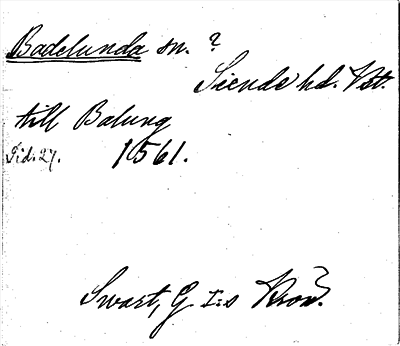 Badelunda sn. ?
Siende hd. Vst.
till Balung
Sid. 27. 1561.
Swart, G I:s Krön.